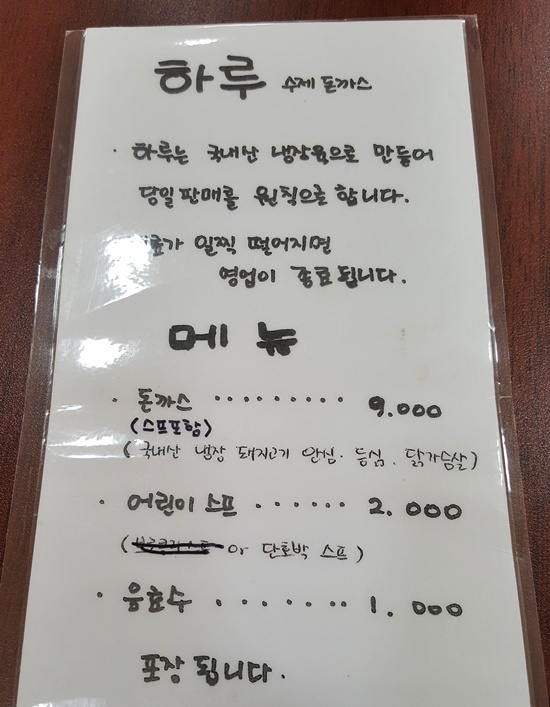 하루 수제 돈까스
· 하루는 국내산 냉장육으로 만들어
당일 판매를 원칙으로 합니다.
일찍 떨어지면
영업이 종료 됩니다.
메뉴
· 돈까스 ········· 9.000
(스프포함)
(국내산 냉장 돼지고기 안심. 등심. 닭가슴살)
· 어린이 스프 ······ 2.000
( or 단호박 스프)
· 음효수 ······· 1.000
포장 됩니다.